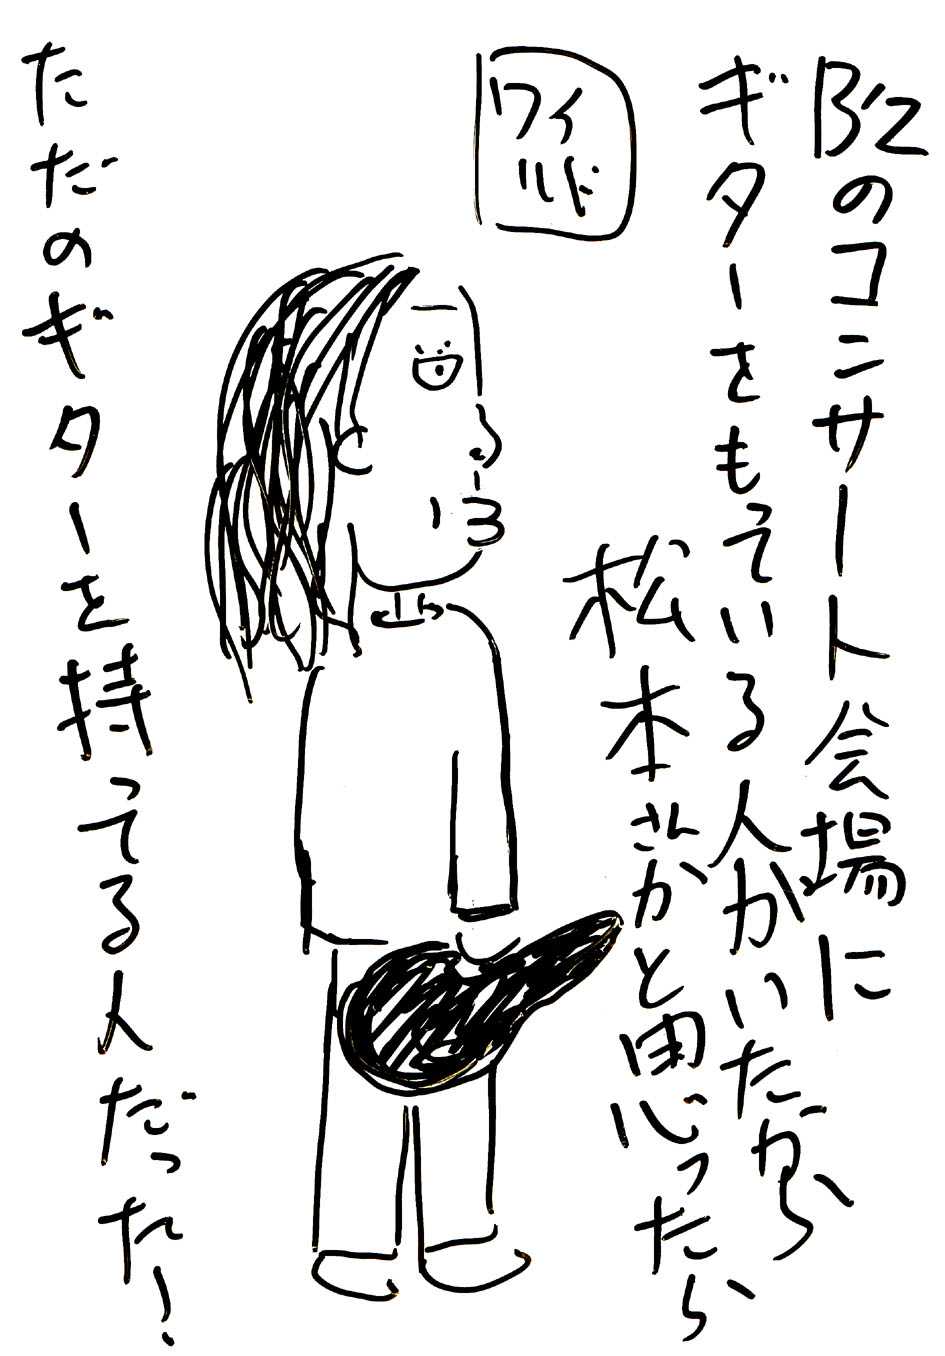 B'zのコンサート会場に
ギターをもっている人がいたから
松本さんかと思ったら
ワイ
ルド
ただのギターを持ってる人だった！